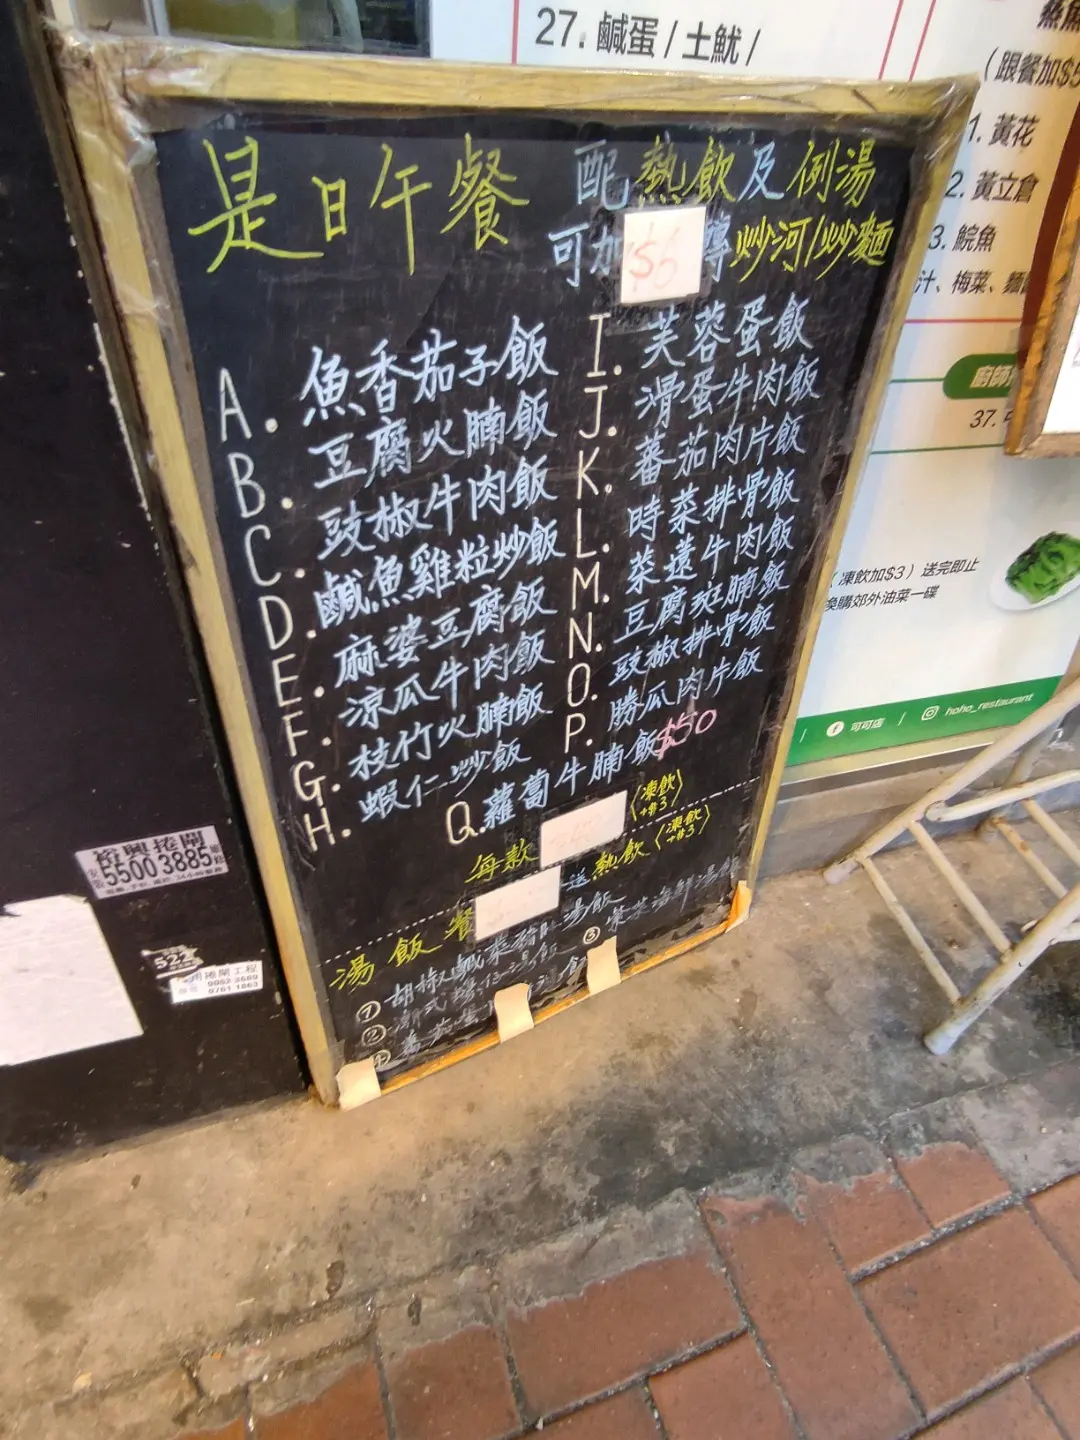 27. 鹹蛋 / 土魷 /
(跟餐加$5
1. 黃花
2. 黃立倉
3. 鯇魚
汁、梅菜、麵
廚師
37.
(凍飲加$3) 送完即止
換購郊外油菜一碟
可可店 / hoho_restaurant
是日午餐 配熱飲及例湯
可加$6轉炒河/炒麵
A. 魚香茄子飯
B. 豆腐火腩飯
C. 豉椒牛肉飯
D. 鹹魚雞粒炒飯
E. 麻婆豆腐飯
F. 涼瓜牛肉飯
G. 枝竹火腩飯
H. 蝦仁炒飯
I. 芙蓉蛋飯
J. 滑蛋牛肉飯
K. 蕃茄肉片飯
L. 時菜排骨飯
M. 菜薳牛肉飯
N. 豆腐斑腩飯
O. 豉椒排骨飯
P. 勝瓜肉片飯
Q. 蘿蔔牛腩飯$50
每款 (凍飲+$3)
湯飯餐 送熱飲 (凍飲+$3)
① 胡椒鹹菜豬肚湯飯
② 潮式
③ 紫菜海鮮湯飯
④ 蕃茄蛋
裕興捲閘
5500 3885
522
捲閘工程
9052 3689
9761 1863